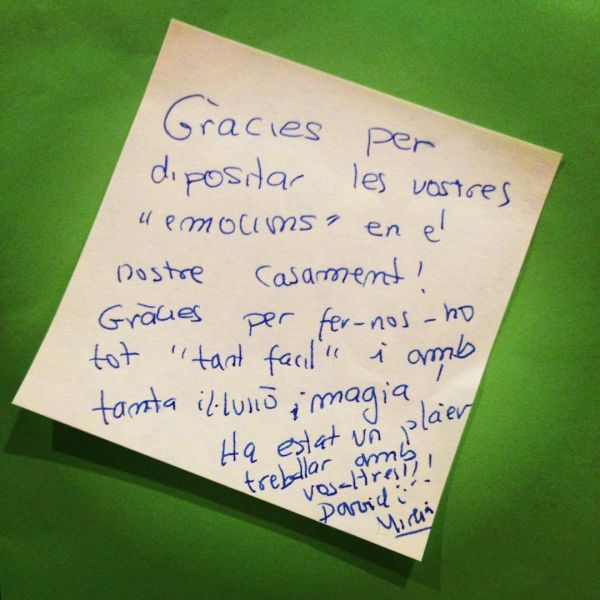 Gràcies per
dipositar les vostres
"emocions" en el
nostre casament!
Gràcies per fer-nos-ho
tot "tant facil" i amb
tanta il·lusiò i magia
Ha estat un plaer
treballar amb
vosaltres!!!
David i
Mireia